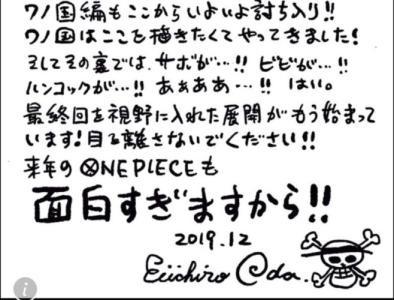 ワノ国編もここからいよいよ討ち入り!!
ワノ国はここを描きたくてやってきました!
そしてその裏では、サボが…!! ビビが…!!
ハンコックが…!! あぁああ…!! はい。
最終回を視野に入れた展開がもう始まって
います!目を離さないでください!!
来年のONE PIECEも
面白すぎますから!!
2019.12
Eiichiro Oda.